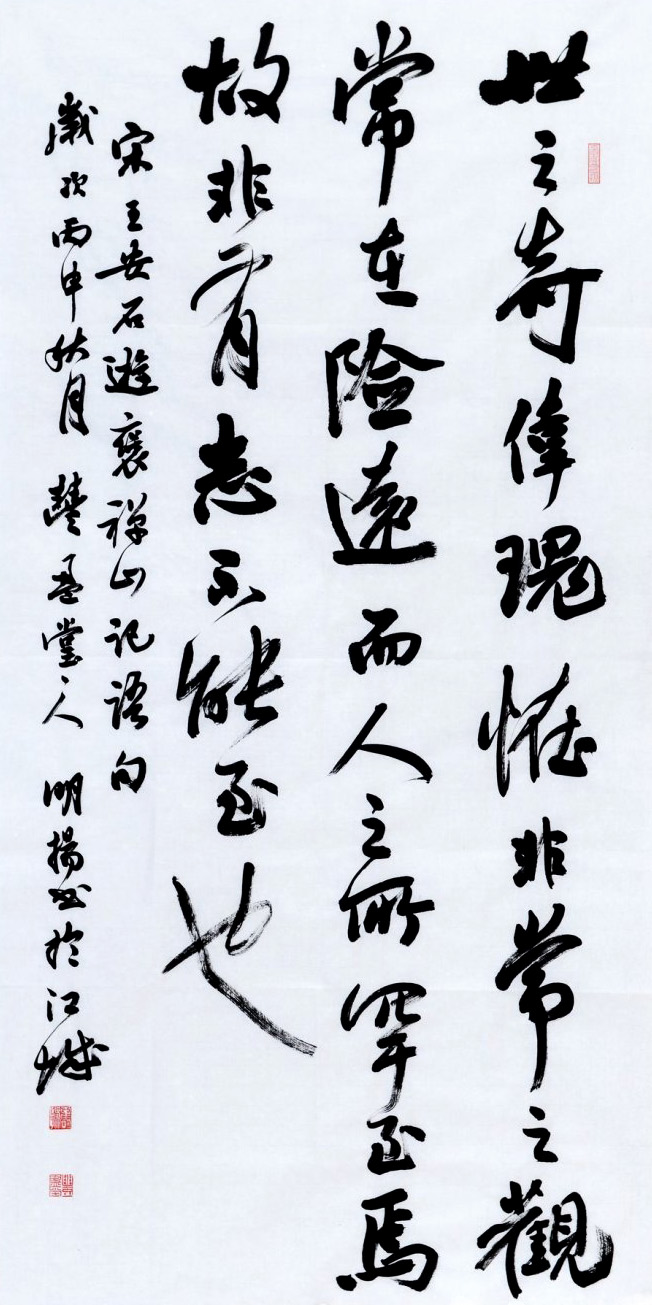 世之奇偉瑰怪非常之觀
常在險遠而人之所罕至焉
故非有志不能至也
宋王安石遊褒禪山記語句
歲次丙申秋月 豐盈堂主人 明揚書於江城